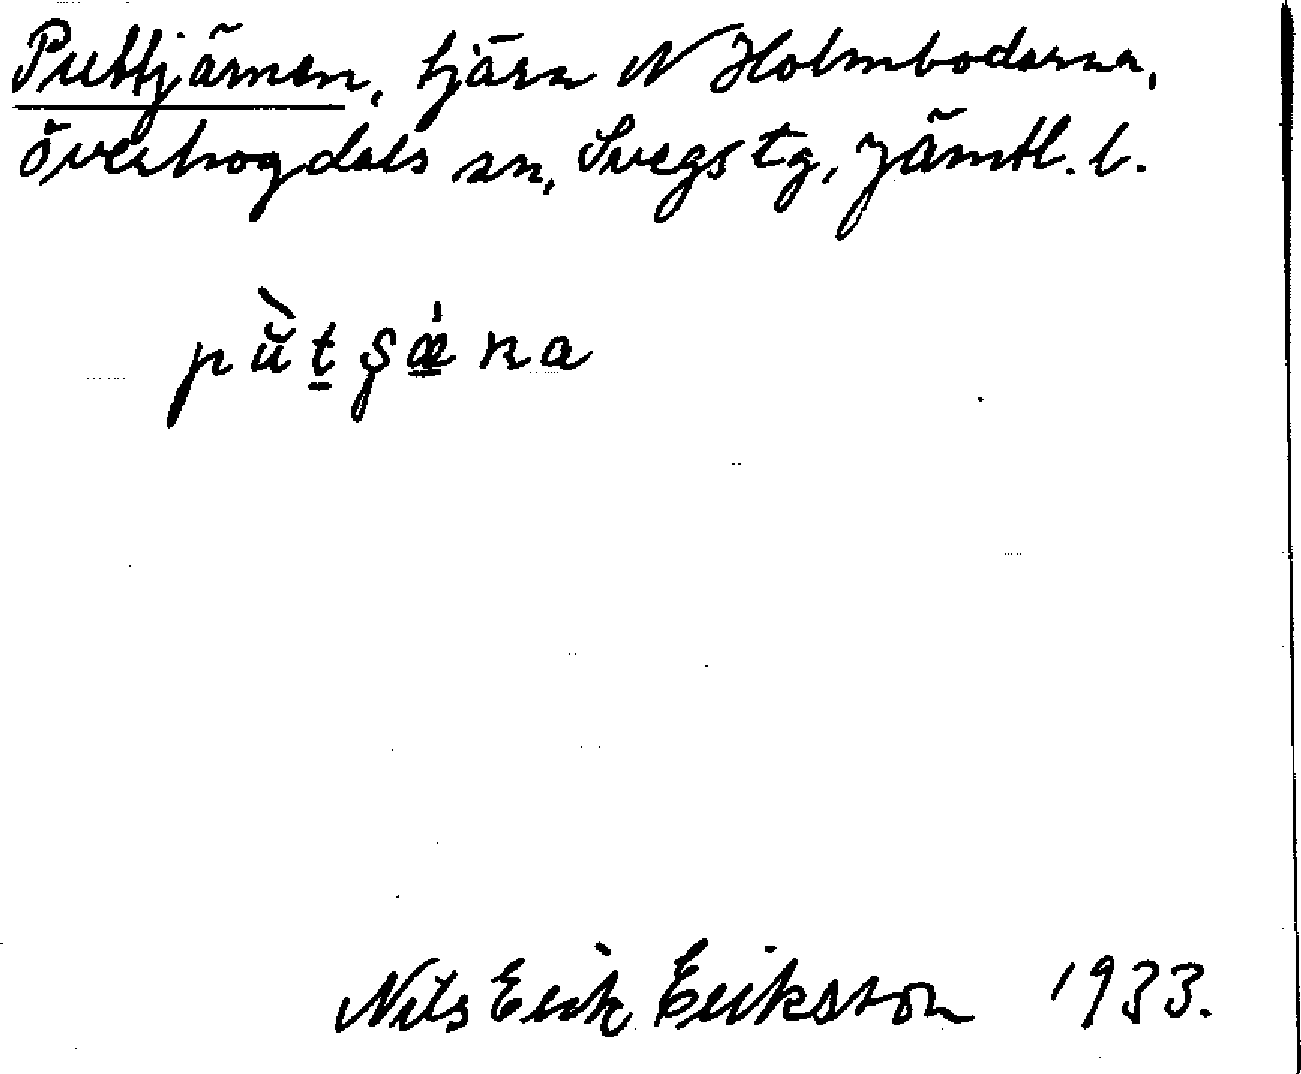 Puttjärnen, tjärn N Holmbodarna,
Överhogdals sn, Svegs tg, Jämtl. l.
pùt̲şǽ̲na
Nils Erik Eriksson 1933.